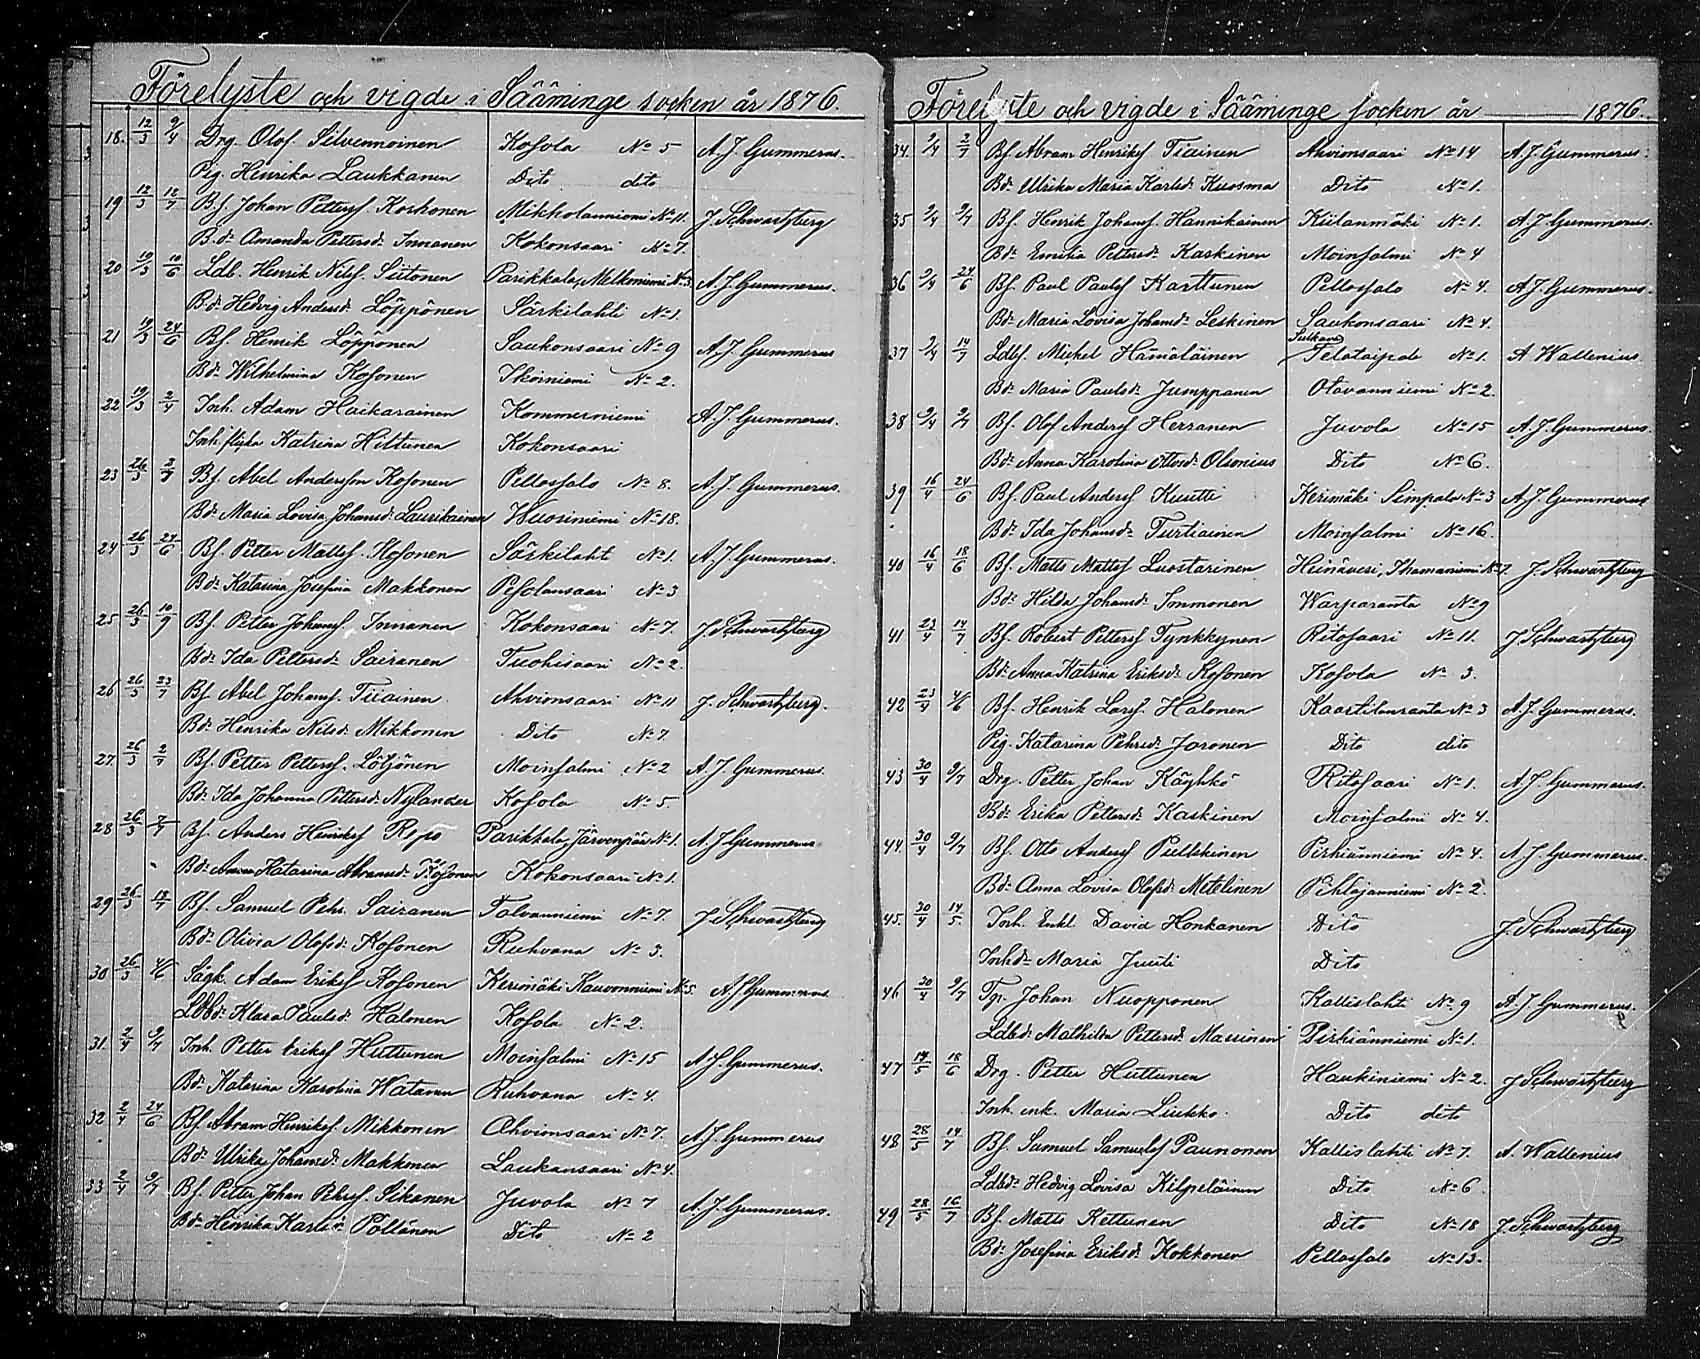 Förelyste och vigde i Sääminge socken år 1876.
18. 12/3 9/4 Drg. Olof Silvennoinen Kosola No 5 A. J. Gummerus.
Pig. Henrika Laukkanen Dito dito
19 12/3 12/7 Bf. Johan Pettersf. Koskonen Mikkolanniemi No 11. J. Schwartzberg
B.d. Amanda Pettersd. Immonen Kokonsaari No 7.
20 19/3 10/6 Ldb. Henrik Nilsf. Siitonen Parikkala, Melkoniemi No 3 A. J. Gummerus.
B.d. Hedvig Andersd. Löppönen Särkilahti No 1.
21 19/3 24/6 Bf. Henrik Löppönen Saukonsaari No 9 A. J. Gummerus
Bd. Wilhelmina Kosonen Ikoiniemi No 2.
22 19/3 2/4 Inh. Adam Haikarainen Kommerniemi A. J. Gummerus.
Inh. flicka Katrina Hiltunen Kokonsaari
23 26/3 2/7 Bf. Abel Andersson Kosonen Pellossalo No 8. A. J. Gummerus.
Bd. Maria Lovisa Johansd. Laurikainen Wuoriniemi No 18.
24 26/3 24/6 Bf. Petter Mattsf. Kosonen Särkilaht No 1. A. J. Gummerus.
Bd. Katarina Josefina Makkonen Pesolansaari No 3
25 26/3 10/9 Bf. Petter Johansf. Immonen Kokonsaari No 7. J. Schwartzberg
Bd. Ida Pettersd. Sairanen Tuohisaari No 2.
26 26/3 23/7 Bf. Abel Johansf. Tiiainen Ahvionsaari No 11 J. Schwartzberg.
Bd. Henrika Nilsd. Mikkonen Dito No 7.
27 26/3 2/7 Bf. Petter Pettersf. Löljönen Moinsalmi No 2 A. J. Gummerus.
Bd. Ida Johanna Pettersd. Nylander Kosola No 5
28 26/3 2/7 Bf. Anders Henriksf Repo Parikkala, Järvenpää No 1. A. J. Gummerus
Bd. Anna Katarina Abramsd. Kosonen Kokonsaari No 1.
29 26/3 12/7 Bf. Samuel Pehr. Sairanen Talvanniemi No 7. J. Schwartzberg
Bd. Olivia Olofsd. Kosonen Ruhvana No 3.
30 26/3 4/6 Sägk. Adam Eriksf Kosonen Kerimäki Kauvonniemi No 5. A J Gummerus
Ldbd. Klara Paulsd. Halonen Kosola No 2.
31. 2/4 9/7 Inh. Petter Eriksf Huttunen Moinsalmi No 15 A. J. Gummerus.
Bd. Katarina Karolina Watanen Ruhvana No 4.
32 2/4 24/6 Bf. Abram Henriksf. Mikkonen Ahvionsaari No 7. A. J. Gummerus
Bd. Ulrika Johansd. Makkonen Laukansaari No 4.
33 2/4 9/7 Bf. Petter Johan Pehrsf. Sikanen Juvola No 7 A. J. Gummerus.
Bd. Henrika Karlsd. Pöllänen Dito No 2
Förelyste och vigde i Sääminge socken år 1876.
34. 2/4 2/7 Bf. Abram Henriksf Tiainen Ahvionsaari No 14 A. J. Gummerus.
Bd. Ulrika Maria Karlsd. Kuosma Dito No 1.
35 2/4 9/7 Bf. Henrik Johansf. Hannikainen Kiilanmäki No 1. A. J. Gummerus.
Bd. Emilia Pettersd. Kaskinen Moinsalmi No 4
36 2/4 24/6 Bf. Paul Paulsf Karttunen Pellossalo No 4. A. J. Gummerus.
Bd. Maria Lovisa Johansd. Leskinen Saukonsaari No 4.
Sulkava
37 2/4 14/7 Ldbf. Mickel Hämäläinen Telataipale No 1. A Wallenius.
Bd. Maria Paulsd. Jumppanen Otavanniemi No 2.
38 9/4 9/7 Bf. Olof Andersf Herranen Juvola No 15 A. J. Gummerus.
Bd. Anna Karolina Ottosd. Olsonius Dito No 6.
39 16/4 24/6 Bf. Paul Andersf Kuutti Kerimäki Simpala No 3 A. J. Gummerus
Bd. Ida Johansd. Turtiainen Moinsalmi No 16.
40 16/4 18/6 Bf. Matts Mattsf Luostarinen Heinävesi, Ihamaniemi No 7 J. Schwartzberg
Bd. Hilda Johansd. Immonen Warparanta No 9
41 23/4 14/7 Bf. Robert Pettersf Tynkkynen Ritosaari No 11. J. Schwartzberg
Bd. Anna Katrina Eriksd. Kosonen Kosola No 3.
42 23/4 4/6 Bf. Henrik Larsf. Halonen Kaartilanranta No 3 A. J. Gummerus.
Pig. Katarina Pehrsd. Joronen Dito dito
43 30/4 9/7 Drg. Petter Johan Käyhkö Ritosaari No 1. A. J. Gummerus.
Bd. Erika Pettersd. Kaskinen Moinsalmi No 4.
44 30/4 9/7 Bf. Otto Andersf Pullikinen Pirhiänniemi No 4. A. J. Gummerus.
Bd. Anna Lovisa Olofsd. Metelinen Pihlajanniemi No 2.
45. 30/4 14/5. Inh. Enkl. David Honkanen Dito J. Schwartzberg
Inhd. Maria Juuti Dito
46 30/4 9/7 Tgr. Johan Nuopponen Kallislaht No 9 A. J. Gummerus.
Ldbd. Mathilda Pettersd. Massinen Pirhiänniemi No 1.
47 14/5 18/6 Drg. Petter Huttunen Haukiniemi No 2. J Schwartzberg
Inh. enk. Maria Liukko. Dito dito
48 28/5 14/7 Bf. Samuel Samuelsf Paunonen Kallislahti No 7. A. Wallenius
Ldbd. Hedvig Lovisa Kilpeläinen Dito No 6.
49 28/5 16/7 Bf. Matts Kettunen Dito No 18 J. Schwartzberg
Bd. Josefina Eriksd. Kokkonen Pellossalo No 13.